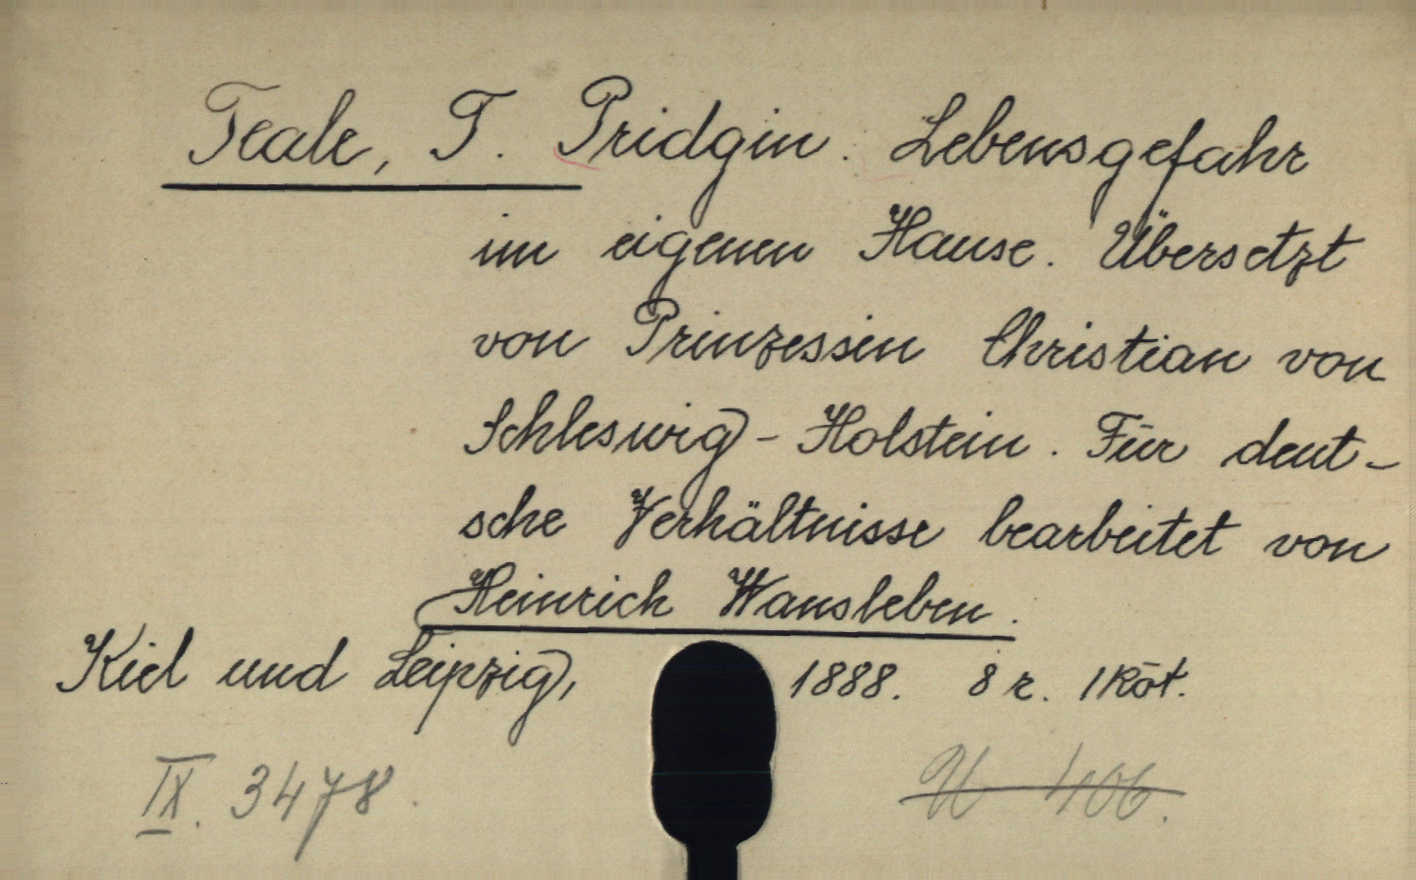 Teale, T. Pridgin. Lebensgefahr
im eigenen Hause. Übersetzt
von Prinzessin Christian von
Schleswig-Holstein. Für deut-
sche Verhältnisse bearbeitet von
Heinrich Wansleben.
Kiel und Leipzig, 1888. 8 r. 1 Köt.
IX. 3478. U 406.